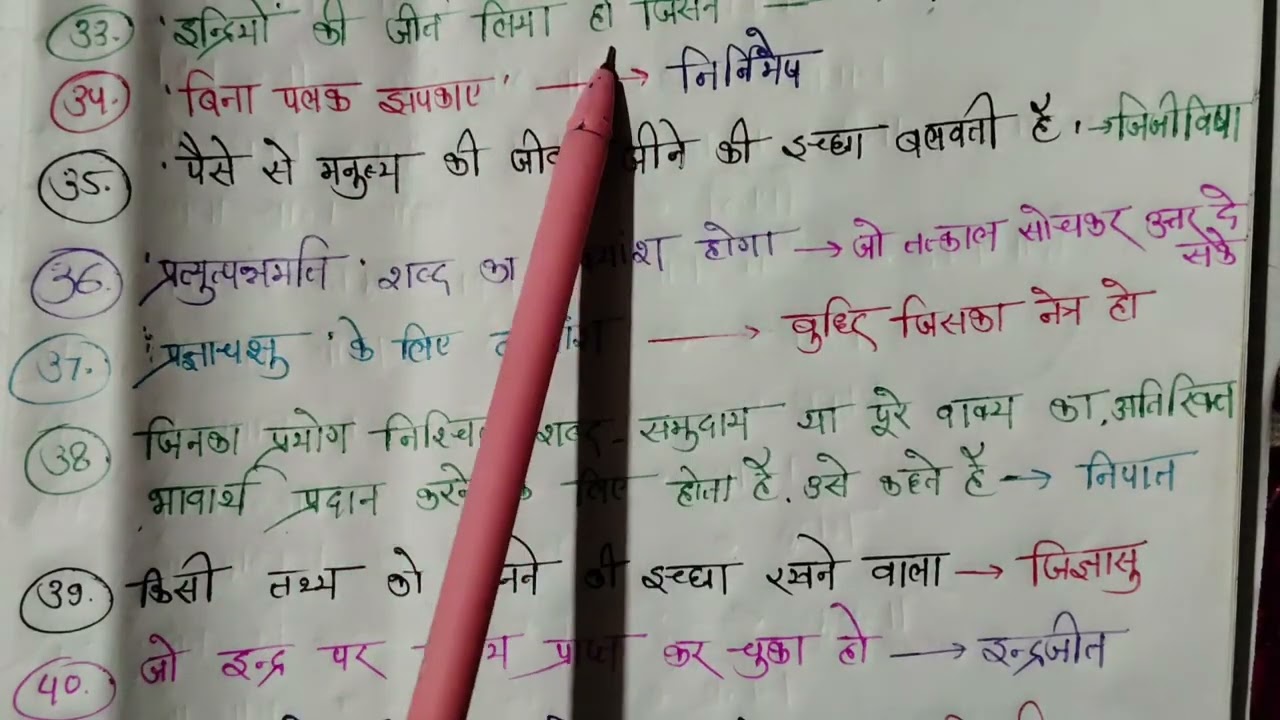 33. 'इन्द्रियों की जीत लिया हो जिसने
34. 'बिना पलक झपकाए' → निर्निमेष
35. 'पैसे से मनुष्य की जीने की इच्छा बलवती है' → जिजीविषा
36. 'प्रत्युत्पन्नमति' शब्द का होगा → जो तत्काल सोचकर उत्तर दे
सके
37. 'प्रज्ञाचक्षु' के लिए → बुध्दि जिसका नेत्र हो
38 जिनका प्रयोग निश्चित शब्द - समुदाय या पूरे वाक्य का अतिरिक्त
भावार्थ प्रदान करने के लिए होता है. उसे कहते है → निपात
39. किसी तथ्य को की इच्छा रखने वाला → जिज्ञासु
40. जो इन्द्र पर प्राप्त कर चुका हो → इन्द्रजीत